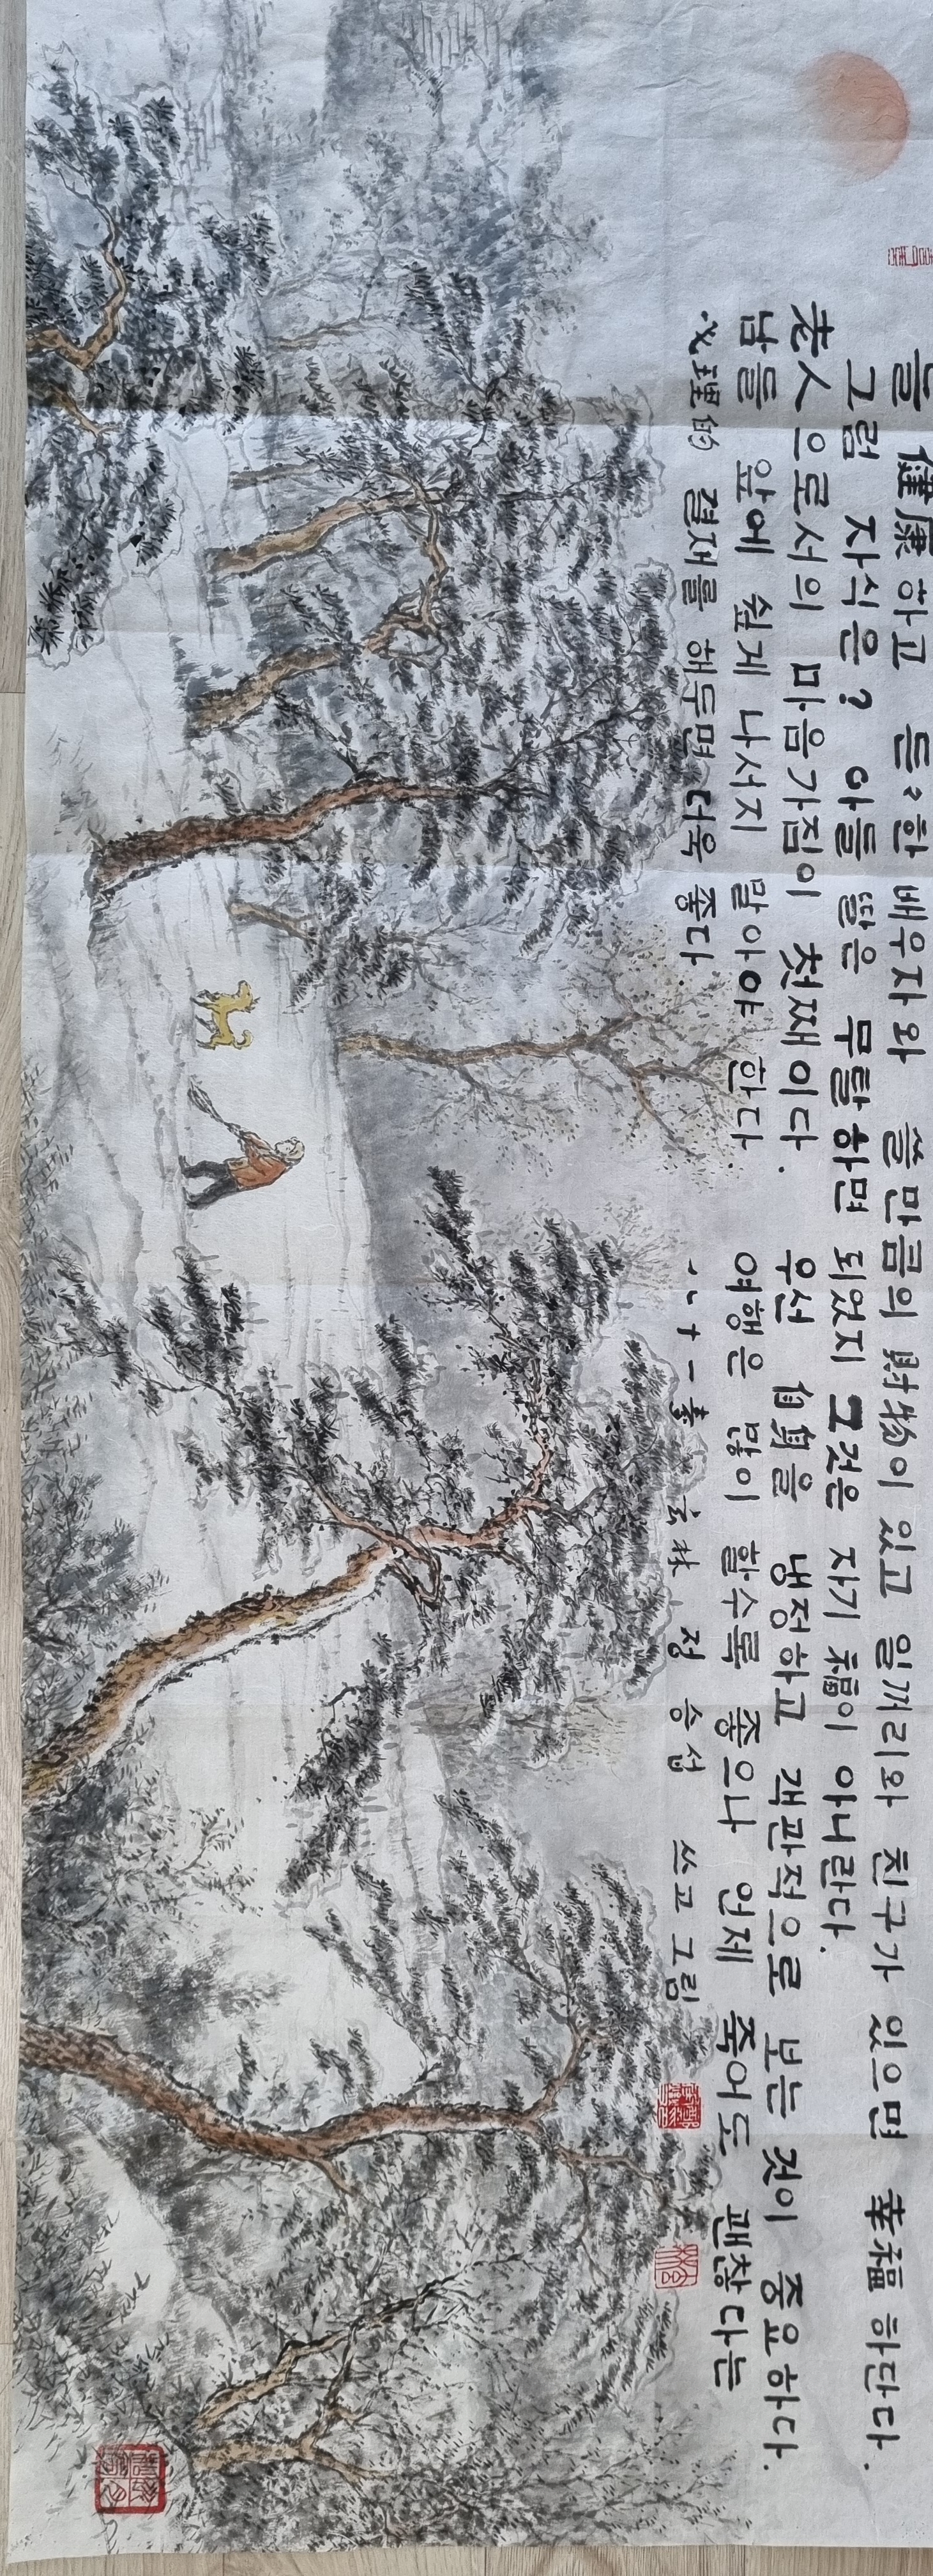 늘 健康하고 든〃한 배우자와 쓸만큼의 財物이 있고 일꺼리와 친구가 있으면 幸福하단다.
그럼 자식은? 아들 딸은 무탈하면 되었지 그것은 자기 福이 아니란다.
老人으로서의 마음가짐이 첫째이다. 우선 自身을 냉정하고 객관적으로 보는 것이 중요하다.
남들 앞에 쉽게 나서지 말아야 한다. 여행은 많이 할수록 좋으나 언제 죽어도 괜찮다는
心理的 결재를 해두면 더욱 좋다. 玄林 정 승섭 쓰고 그림